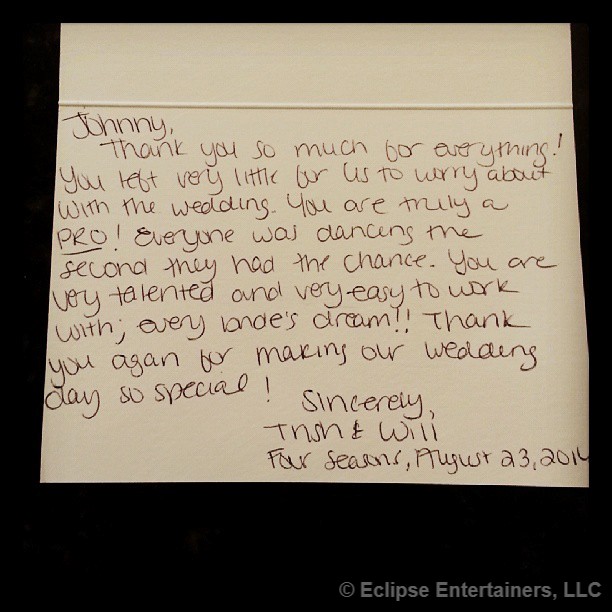 Johnny,
Thank you so much for everything!
You left very little for us to worry about
with the wedding. You are truly a
PRO! Everyone was dancing the
second they had the chance. You are
very talented and very easy to work
with; every bride's dream!! Thank
you again for making our wedding
day so special!
Sincerely,
Trish & Will
Four Seasons, August 23, 2014
© Eclipse Entertainers, LLC